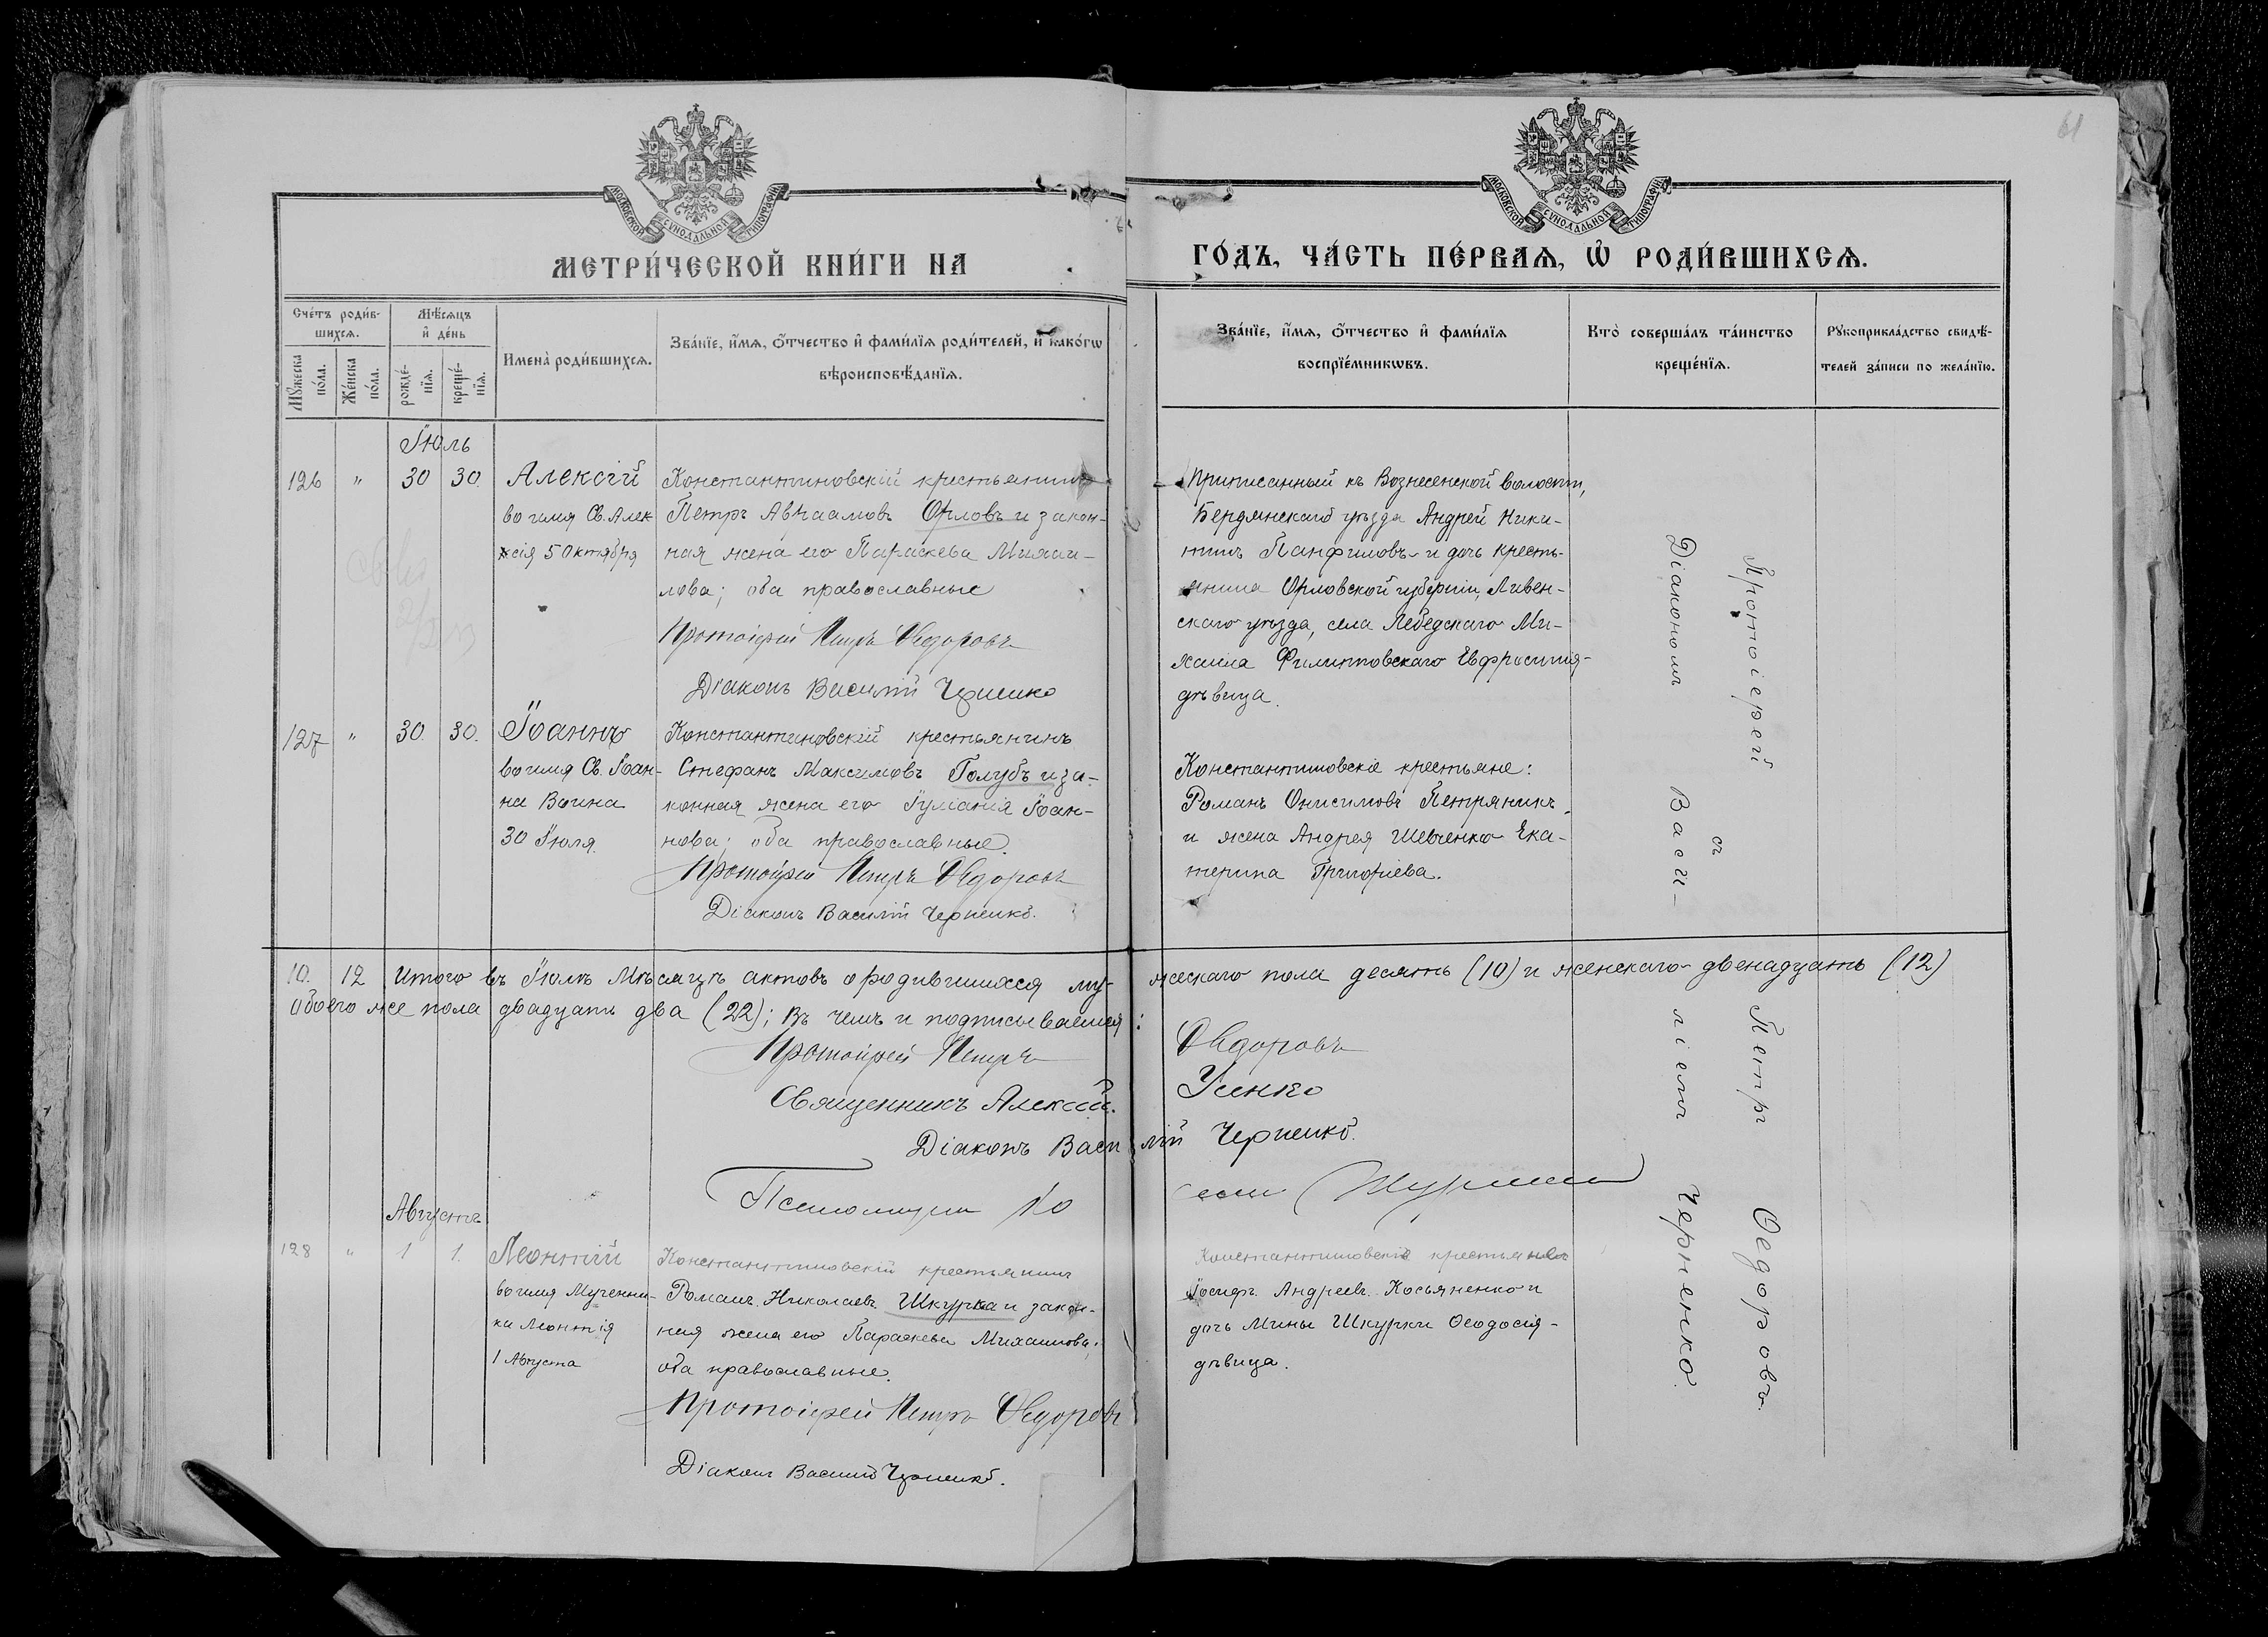 61
МОСКОВСКОЙ СѴНОДАЛЬНОЙ ТИПОГРАФІИ
МОСКОВСКОЙ СѴНОДАЛЬНОЙ ТИПОГРАФІИ
МЕТРИ́ЧЕСКОЙ КНИ́ГИ НА
ГО́ДЪ, ЧА́СТЬ ПЕ́РВАѦ, Ѽ РОДИ́ВШИХСѦ.
Сче́тъ роди́в-
шихсѧ.
Мꙋ́жеска
по́ла.
Же́нска
по́ла.
Мѣ́сѧцъ
и҆ де́нь
рожде́-
нїѧ.
креще́-
нїѧ.
Имена̀ роди́вшихсѧ.
Зва́нїе, и҆́мѧ, ѻ҆́тчество и҆ фами́лїѧ роди́телей, и҆ како́гѡ
вѣроисповѣ́данїѧ.
Зва́нїе, и҆́мѧ, ѻ҆́тчество и҆ фами́лїѧ
воспрїе́мникѡвъ.
Кто̀ соверша́лъ та́инство
креще́нїѧ.
Рꙋкоприкла́дство свидѣ́-
телей за́писи по жела́нїю.
Іюль
126 " 30 30. Алексій
во имя Св. Алек
сія 5 Октября
Константиновскій крестьянинъ
Петръ Авраамовъ Орловъ и закон-
ная жена его Параскева Михаи-
лова; оба православные
Протоіерей Петръ Ѳедоровъ
Діаконъ Василій Черненко
Приписанный къ Вознесенской волости,
Бердянскаго уѣзда Андрей Ники-
тинъ Панфиловъ и дочь кресть-
янина Орловской губерніи, Ливен-
скаго уѣзда, села Лебедскаго Ми-
хаила Филиповскаго Евфросинія-
дѣвица.
127 " 30. 30. Іоаннъ
во имя Св. Іоан-
на Воина
30 Іюля.
Константиновскій крестьянинъ
Стефанъ Максимовъ Голубъ и за-
конная жена его Іуліанія Іоан-
нова; оба православные.
Протоіерей Петръ Ѳедоровъ
Діаконъ Василій Черненко.
Константиновскіе крестьяне:
Романъ Онисимовъ Петряникъ
и жена Андрея Шевченко Ека-
терина Григоріева.
10. 12 Итого въ Іюлѣ Мѣсяцѣ актовъ о родившихся му- жескаго пола десять (10) и женскаго двенадцать (12)
обоего же пола двадцать два (22); Въ чемъ и подписываемся:
Протоіерей Петръ Ѳедоровъ
Священникъ Алексій Усенко
Діаконъ Василій Черненко.
Августъ
128 " 1 1. Леонтій
во имя Мучени-
ка Леонтія
1 Августа
Константиновскій крестьянинъ
Романъ Николаевъ Шкурка и закон-
ная жена его Параскева Михаилова;
оба православные.
Протоіерей Петръ Ѳедоровъ
Діаконъ Василій Черненко.
Константиновскіе крестьяне
Іосифъ Андреевъ Косьяненко и
дочь Мины Шкурки Ѳеодосія-
дѣвица.
Протоіерей Петръ Ѳедоровъ
съ
Діакономъ Васи-ліемъ Черненко.